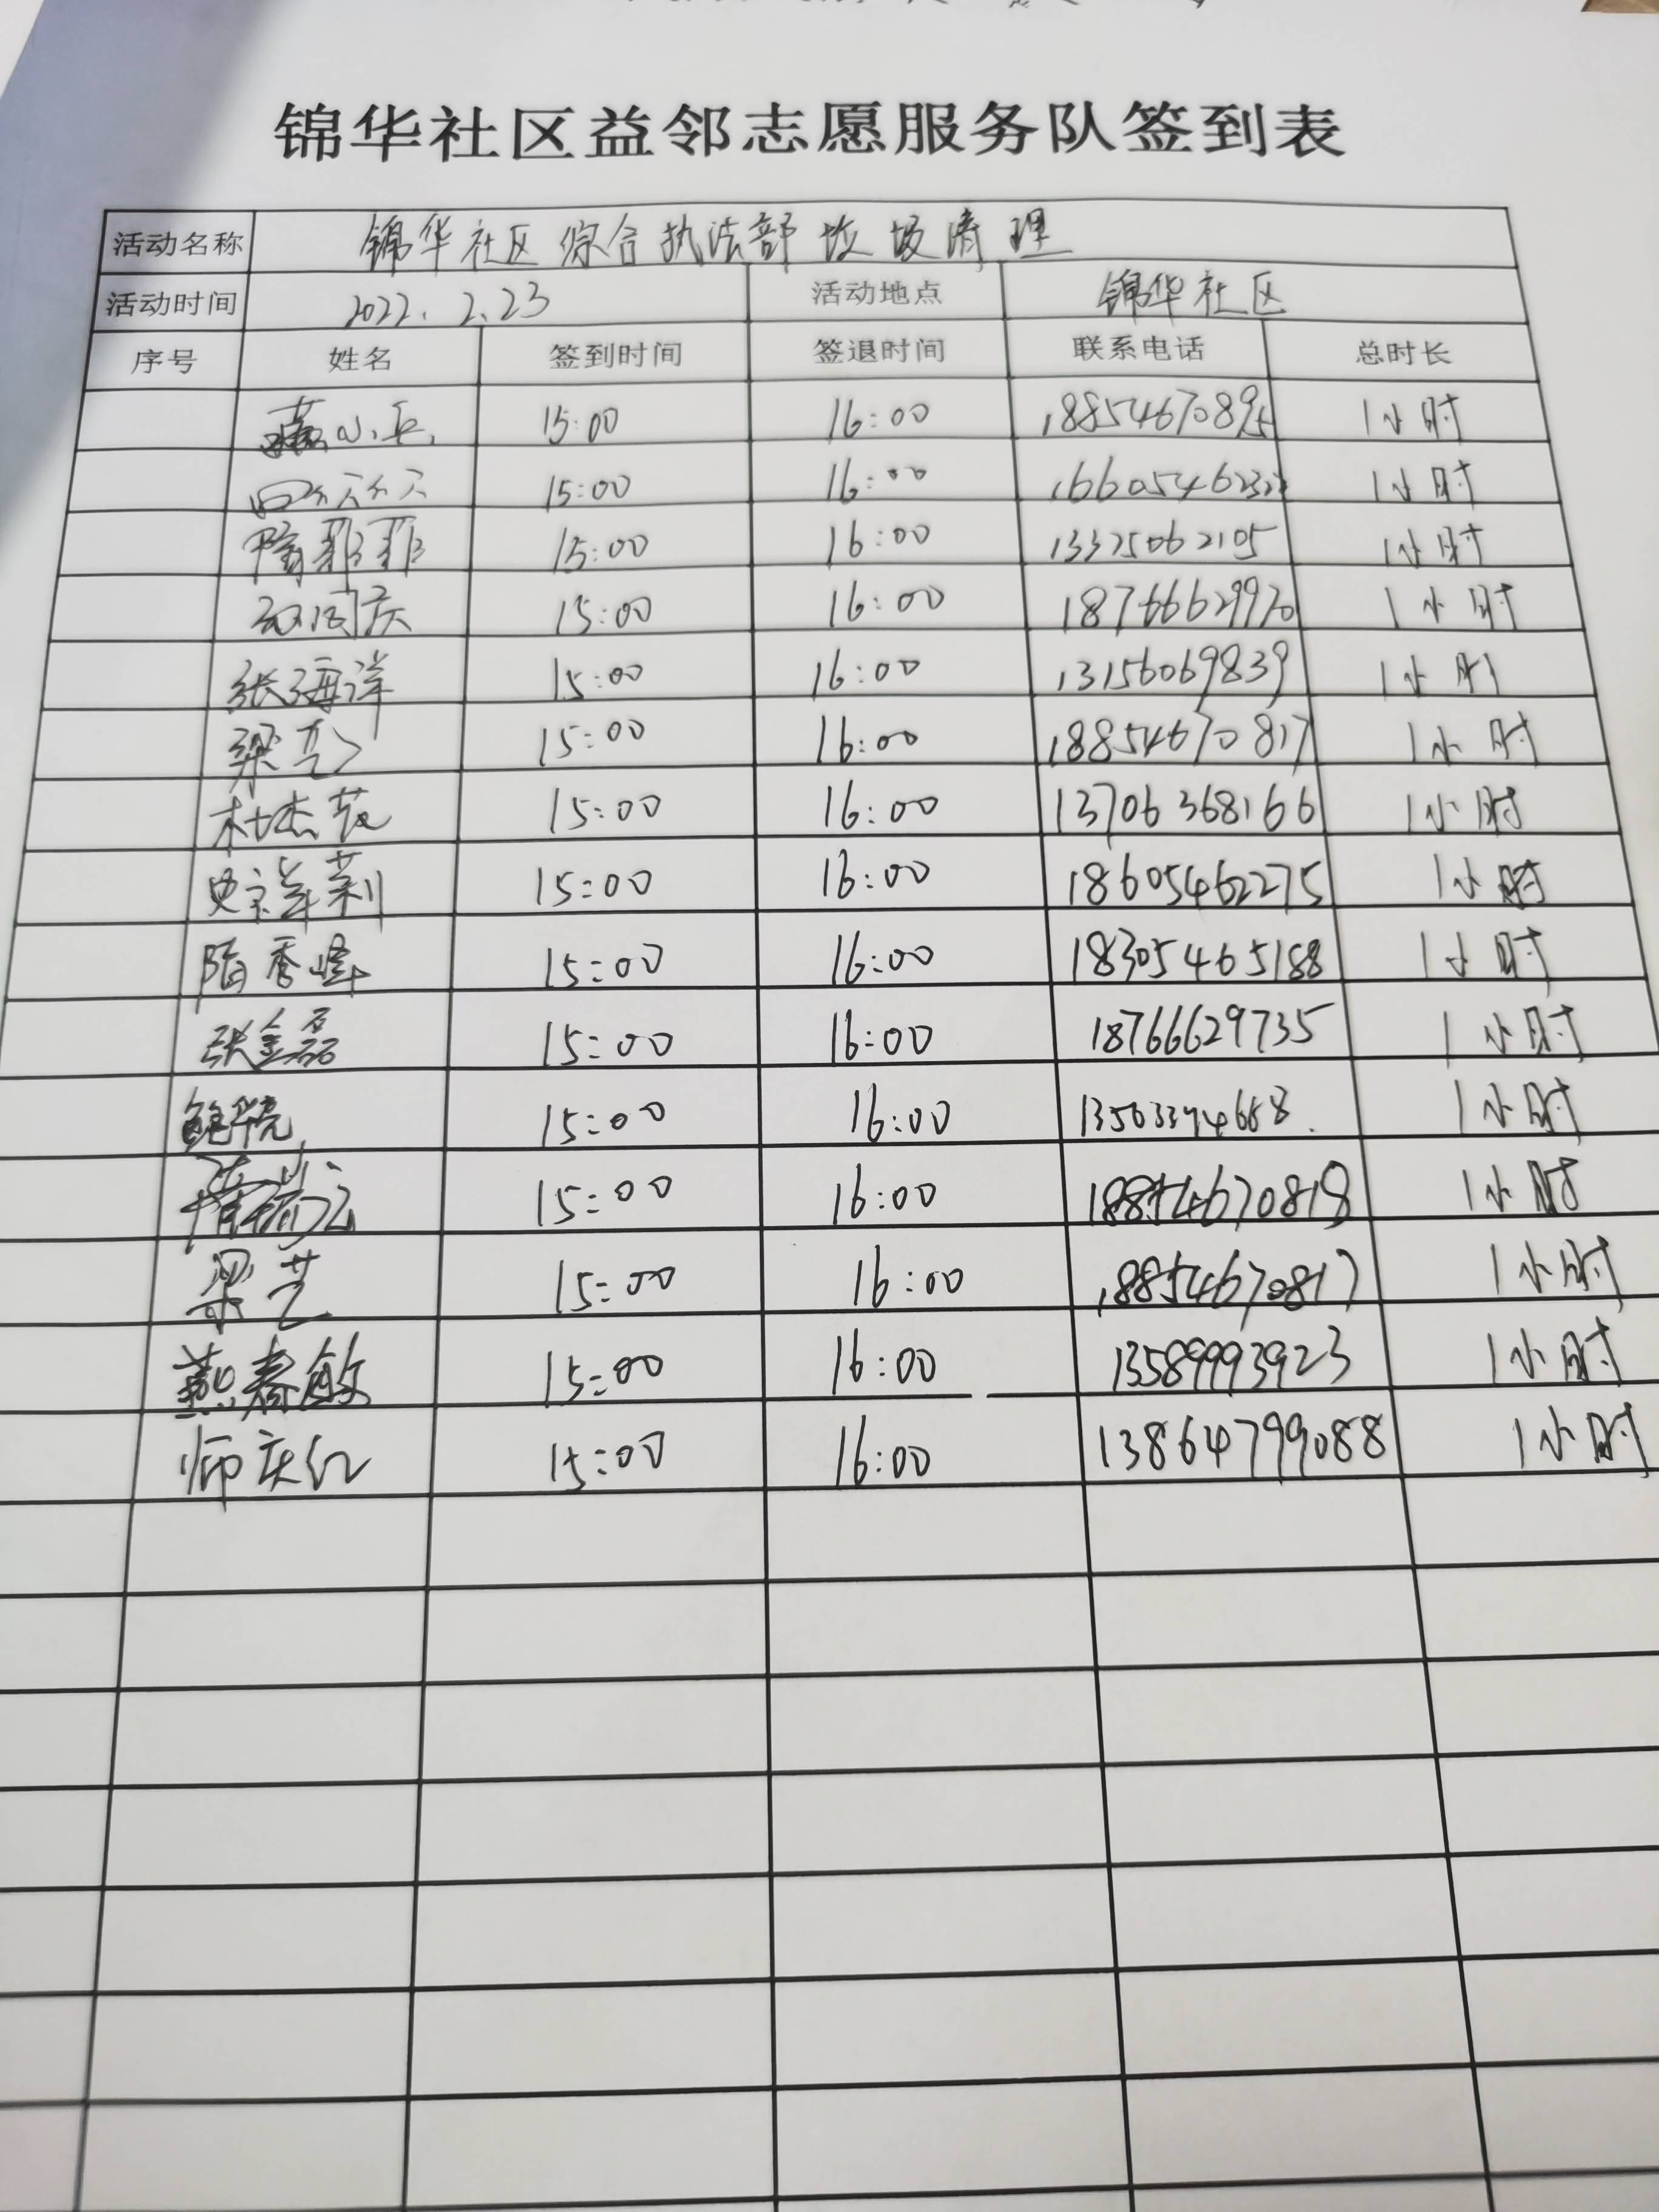 锦华社区益邻志愿服务队签到表
活动名称 锦华社区综合执法部垃圾清理
活动时间 2022.2.23 活动地点 锦华社区
序号 姓名 签到时间 签退时间 联系电话 总时长
15:00 16:00 18854670895 1小时
15:00 16:00 1小时
隋菲菲 15:00 16:00 13325062105 1小时
15:00 16:00 18766629970 1小时
张海洋 15:00 16:00 13156069839 1小时
梁艺 15:00 16:00 18854670817 1小时
杜杰茹 15:00 16:00 13706368166 1小时
15:00 16:00 18605462275 1小时
隋秀峰 15:00 16:00 18305465188 1小时
张金磊 15:00 16:00 18766629735 1小时
鲍华亮 15:00 16:00 13563394668 1小时
15:00 16:00 18854670818 1小时
梁艺 15:00 16:00 18854670817 1小时
燕春敏 15:00 16:00 13589993923 1小时
师庆红 15:00 16:00 13864799088 1小时